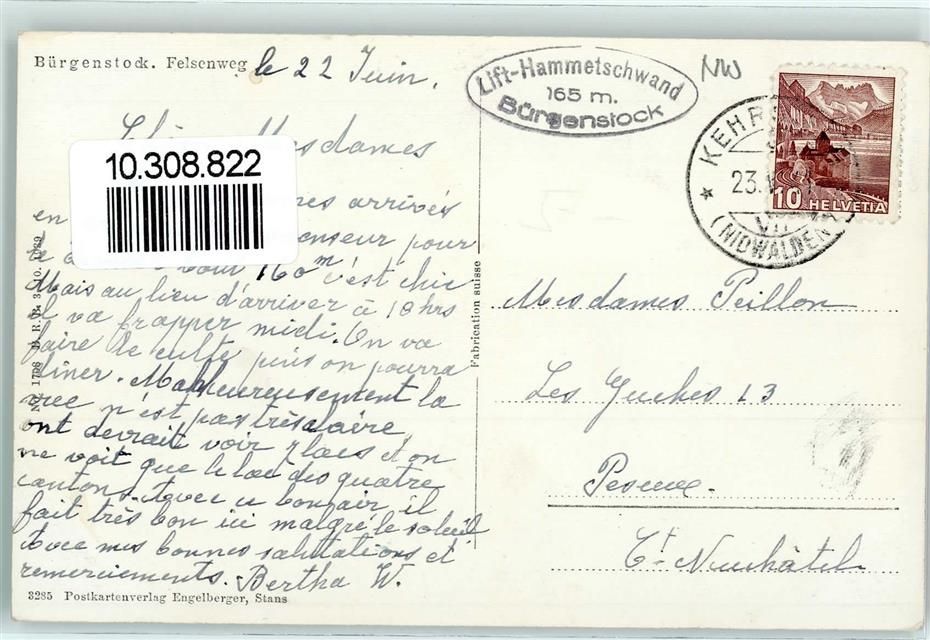 Bürgenstock. Felsenweg
le 22 Juin.
Lift-Hammetschwand
165 m.
Bürgenstock
NW
KEHRS
23.
VII
(NIDWALDEN)
10 HELVETIA
10.308.822
Mesdames
arrivés
en enseur pour
160m c'est chic
Mais au lieu d'arriver à 10 hrs
il va frapper midi. On va
faire le culte puis on pourra
dîner. Malheureusement la
vue n'est pas très claire,
ont devrait voir 7 lacs et on
ne voit que le lac des quatre
cantons. Avec ce bon air, il
fait très bon ici malgré le soleil
Avec mes bonnes salutations et
remerciements. Bertha W.
3285 Postkartenverlag Engelberger, Stans
Fabrication suisse
Mesdames Peillon
Les Guches 13
Peseux.
Ct. Neuchâtel